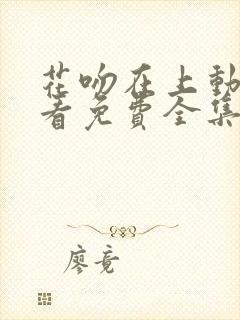 花吻在上動
看免費全集
廖竟